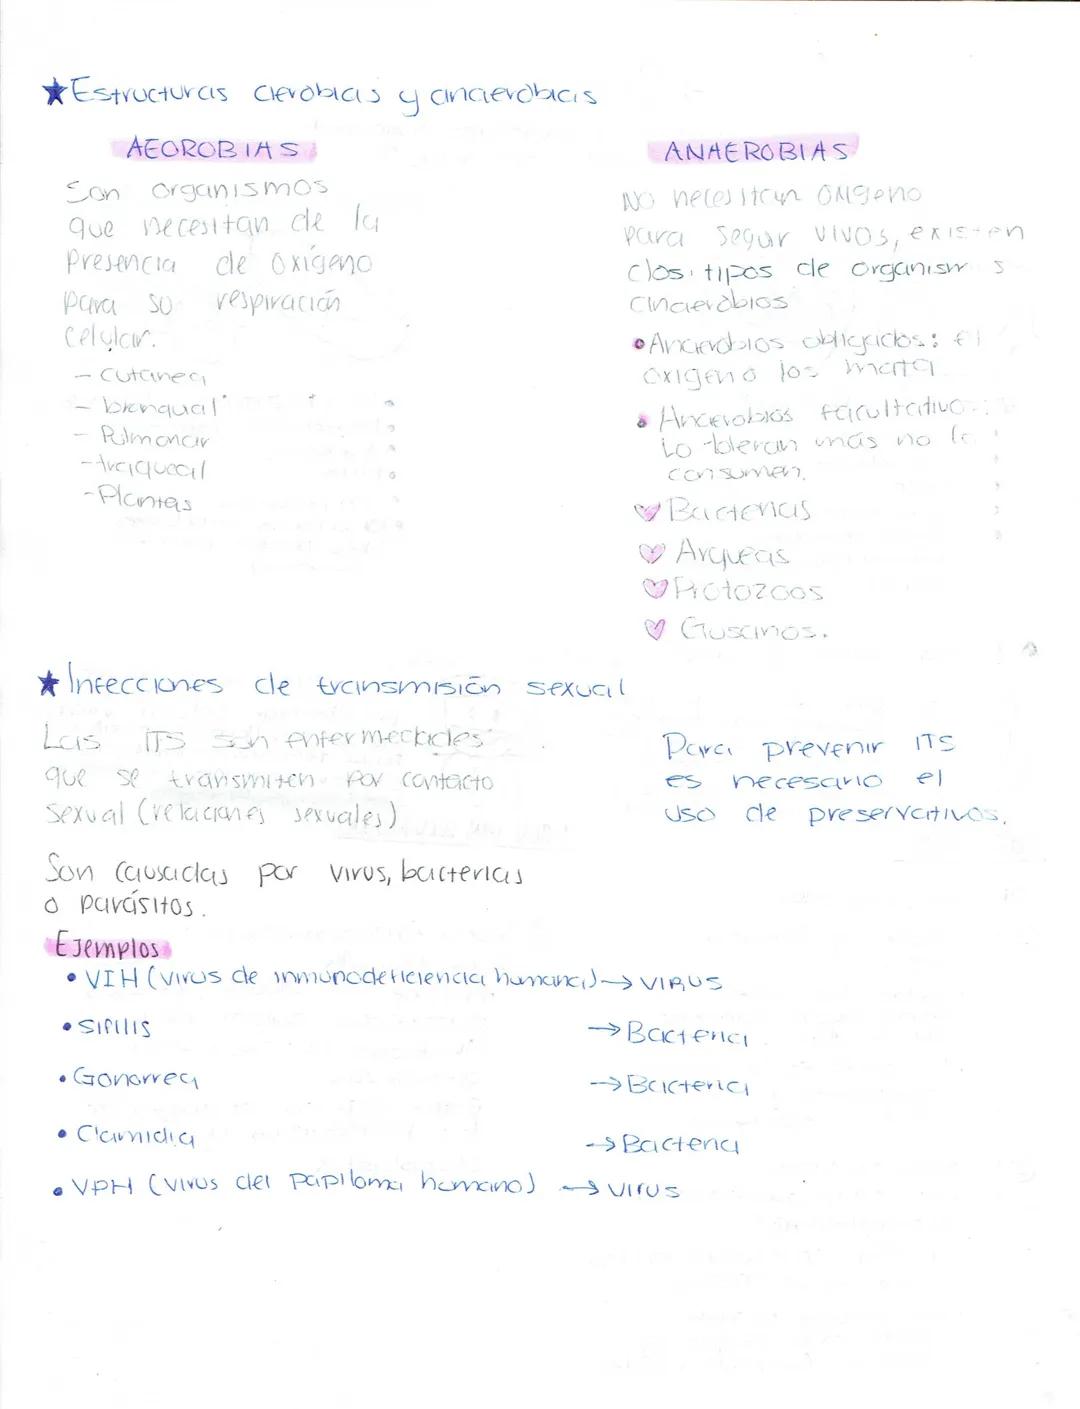 ★Estructuras aerobias y anaerobias
AEOROBIAS
Son organismos
que necesitan de la
presencia de oxígeno
para su respiración
celular.
- Cutanea
- branquial
- Pulmonar
- traqueal
- Plantas
ANAEROBIAS
NO necesitan oxigeno
para seguir vivos, existen
dos tipos de organism s
anaerobios
• Anaerobios obligados: el
oxigeno los mata
• Anaerobios facultativo :
Lo toleran más no lo
consumen.
♥ Bacterias
♥ Arqueas
♥ Protozoos
♥ Gusanos.
★Infecciones de transmisión sexual
Las ITS son enfermedades
que se transmiten por contacto
sexual (relaciones sexuales)
Para prevenir ITS
es necesario el
uso de preservativos.
Son causadas por virus, bacterias
o parásitos.
Ejemplos
• VIH (virus de inmunodeficiencia humana) → VIRUS
• Sifilis → Bacteria
• Gonorrea → Bacteria
• Clamidia → Bacteria
• VPH (virus del papiloma humano) → virus